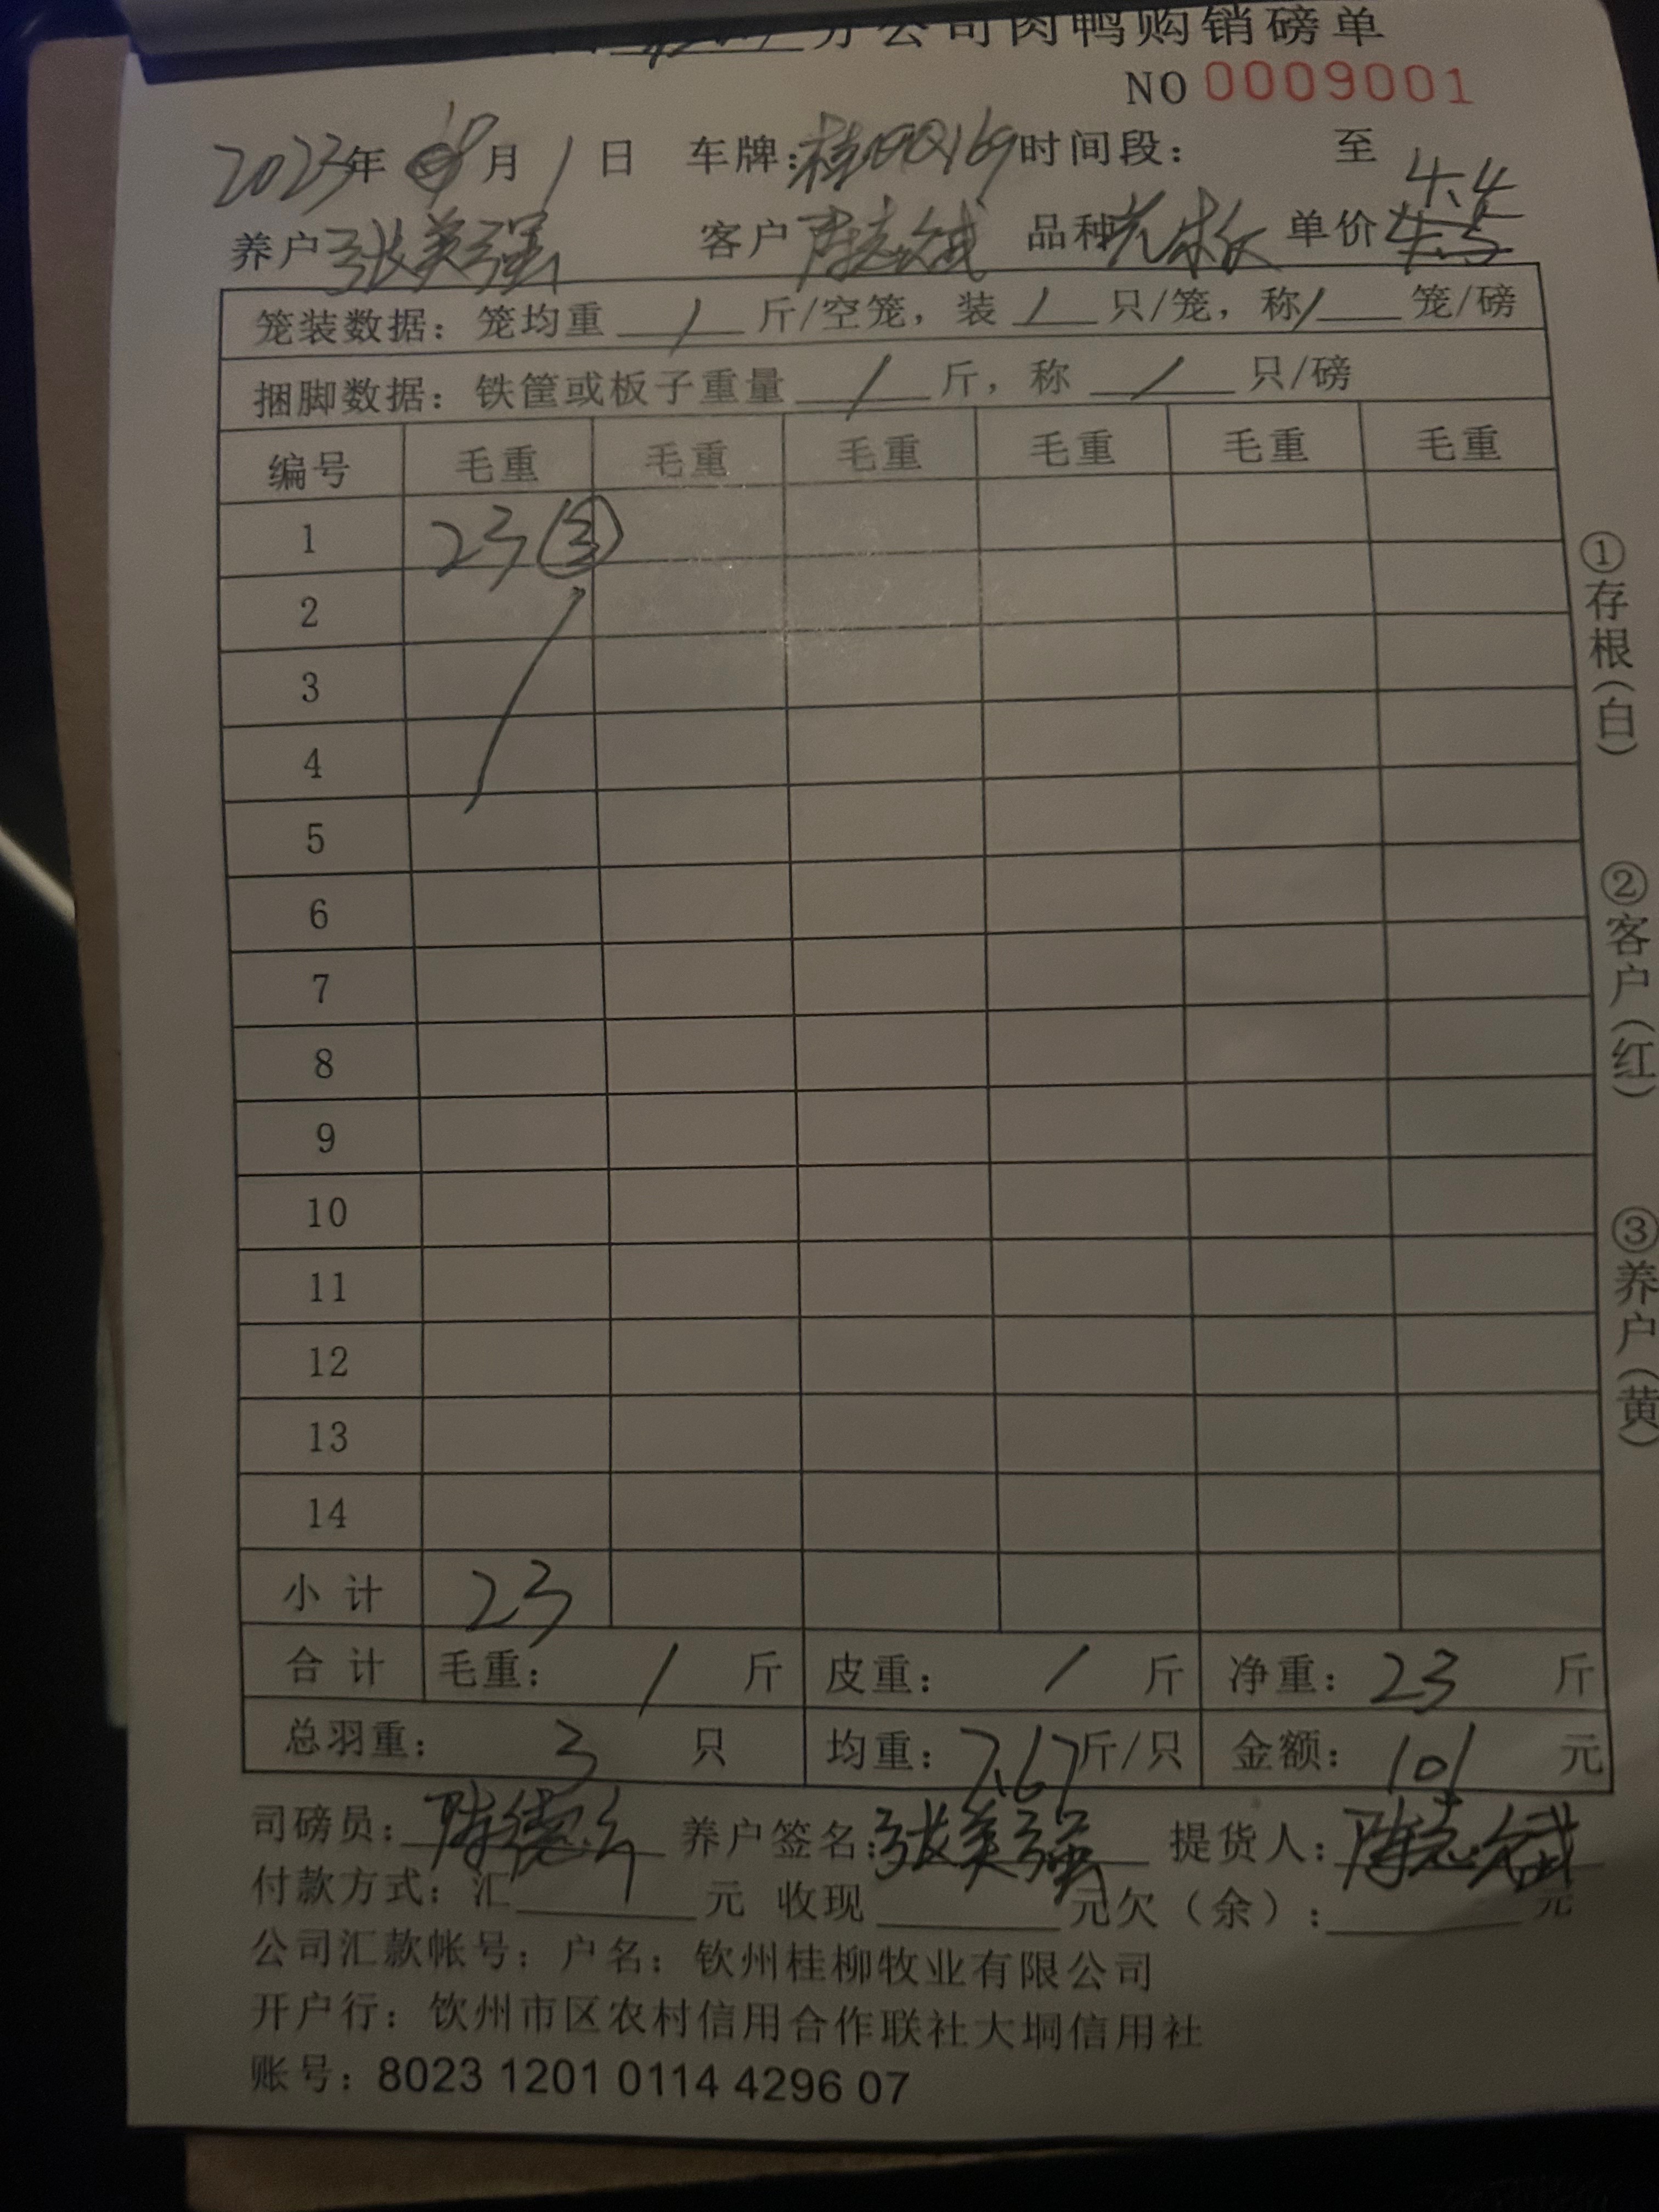 分公司肉鸭购销磅单
NO 0009001
2023年 月 1 日 车牌: 时间段: 至
4.4
养户 张美强 客户 陈志斌 品种 单价 4.5
笼装数据: 笼均重 / 斤/空笼, 装 / 只/笼, 称 / 笼/磅
捆脚数据: 铁筐或板子重量 / 斤, 称 / 只/磅
编号 毛重 毛重 毛重 毛重 毛重 毛重
1 23 ③
2
3
4
5
6
7
8
9
10
11
12
13
14
小计 23
合计 毛重: / 斤 皮重: / 斤 净重: 23 斤
总羽重: 3 只 均重: 7.67 斤/只 金额: 101 元
司磅员: 养户签名: 张美强 提货人: 陈志斌
付款方式: 汇 元 收现 元欠(余): 元
公司汇款帐号: 户名: 钦州桂柳牧业有限公司
开户行: 钦州市区农村信用合作联社大垌信用社
账号: 8023 1201 0114 4296 07
①存根(白)
②客户(红)
③养户(黄)